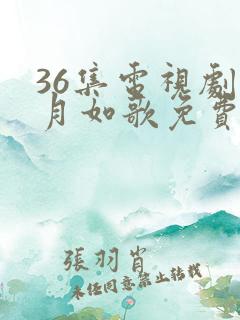 36集電視劇
月如歌免費
張羽肖
未經同意禁止转载